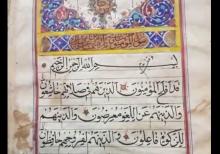 بسم الله الرحمن الرحيم
قد افلح المؤمنون الذين هم في صلاتهم خاشعون
والذين هم عن اللغو معرضون والذين هم
للزكوة فاعلون والذين هم لفروجهم حافظون